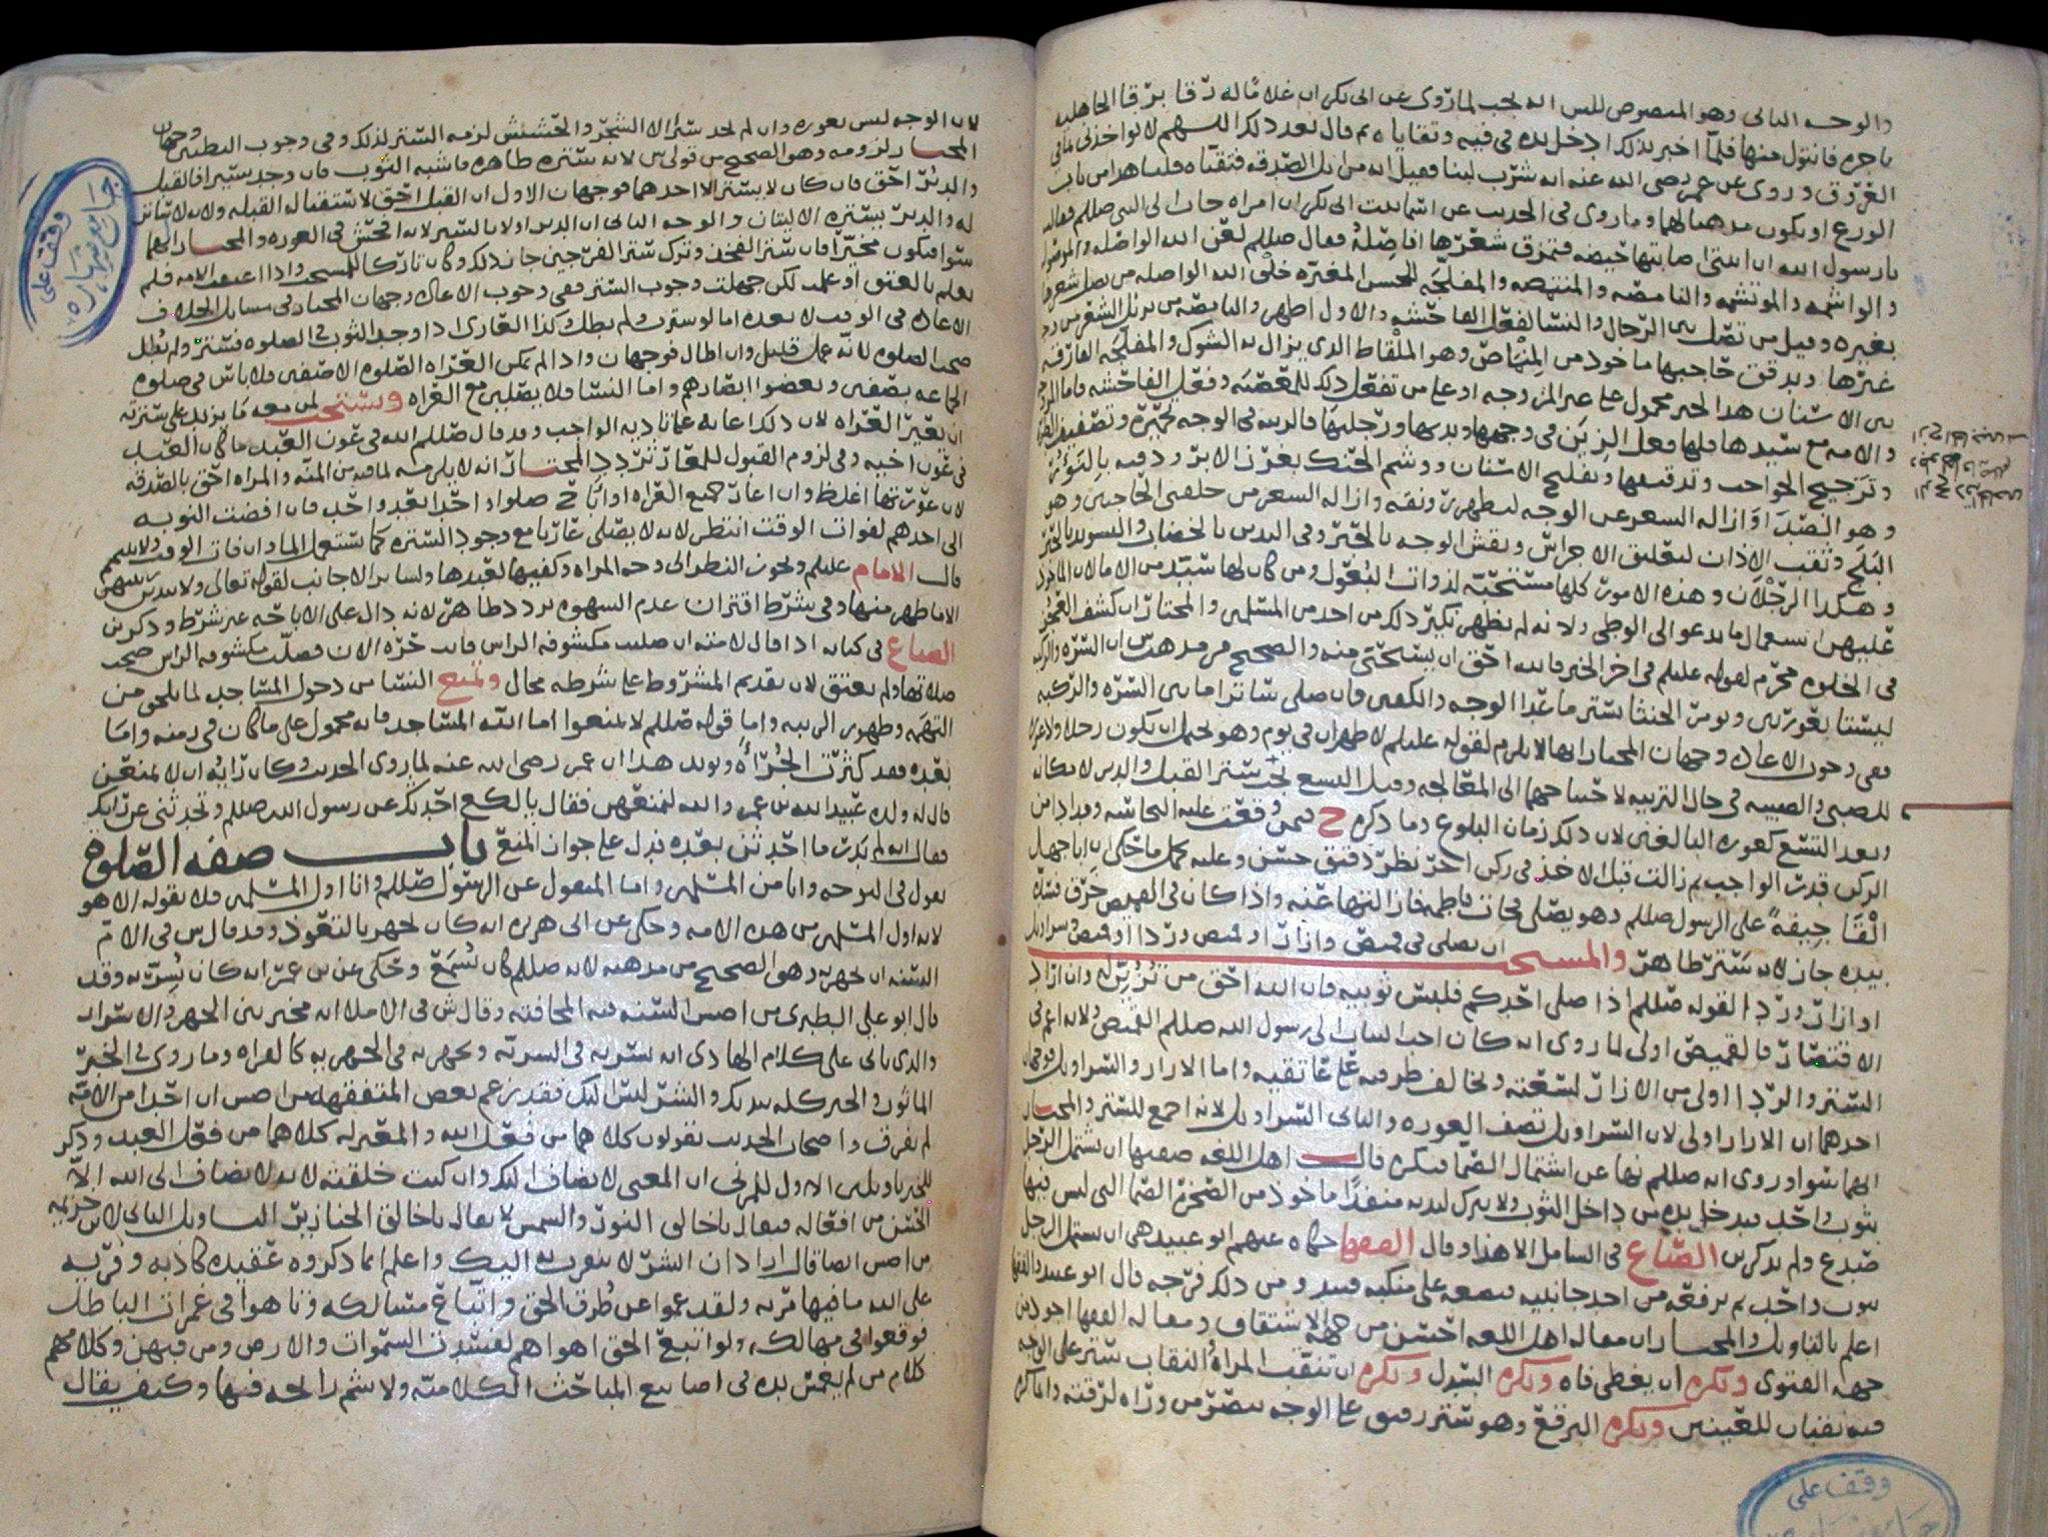 والوجه الثاني وهو المنصوص للش انه يجب لما روى عن ابي بكر ان غلامًا له رقا برقا الجاهلية
باجره فاتى منها فلما اخبر بذلك ادخل يده في فيه وتقاياه ثم قال بعد ذلك اللهم لا تواخذني
العروق وروى عن عمر رضي الله عنه انه شرب لبنا فقيل انه من ابل الصدقه فتقياه
الورع او يكون مذهبا لهما وما روى في الحديث عن اسما بنت ابي بكر ان امراه جات الى النبي صللم فقالت
يا رسول الله ان ابنتي اصابتها فتمزق شعرها افاصله فقال صللم لعن الله الواصله
والواشمه والموتشمه والنامصه والمتنمصه والمفلجه للحسن المغيره خلق الله الواصله من يصل شعرها
بغيره وقيل من تصل بين الرجال والنسا لفعل الفاحشه والاول اظهر والنامصه من تزيل الشعر من
غيرها وتدقق حاجبها ماخوذ من المنماص وهو الملقاط الذي يزال به الشوك والمفلجه الفارقه
بين الاسنان هذا الخبر محمول على غير المزوجه او على من تفعل ذلك للمعصيه وفعل الفاحشه فاما
والامه مع سيدها فلها فعل الزين في وجهها ويديها ورجليها فالزينه في الوجه
وتزجيج الحواجب وتدقيقها وتفليج الاسنان ووشم الحنك بغرز الابر
وهو الصبر او ازاله الشعر عن الوجه لتطهيره ونقه وازاله الشعر من حلقتي الحاجبين وهو
البلج وثقب الاذان لتعليق الاجراس ونقش الوجه بالحمره وفي اليدين بالخضاب والتسويد
وهكذا الرجلان وهذه الامور كلها مستحبه لذوات البعول ومن كان لها سيد من الاما
عليهن استعمال ما يدعو الى الوطي ولانه لم يظهر نكير ذلك من احد من المسلمين والمختار ان كشف
في الخلوه محرم لقوله عليلم في اخر الخبر فالله احق ان يستحى منه والصحيح من مذهب س ان السره والركبه
ليستا بعورتين ويومر الخنثا بستر ما عدا الوجه والكفين فان صلى ساترا ما بين السره والركبه
ففي وجوب الاعاده وجهان المختار انها لا تلزم لقوله عليلم لا ظهران في يوم وهو يحتمل ان يكون رجلا
للصبي والصبيه في حال التربيه لاحتياجهما الى المعالجه وقيل السبع يجب ستر القبل والدبر
وبعد التسع كعوره البالغين لان ذلك زمان البلوغ وما ذكره ح فيمن وقعت عليه النجاسه وقد ادا من
الركن قدر الواجب ثم زالت قبل الاخذ في ركن اخر نظر دقيق حسن وعليه يحمل ما حكى ان ابا جهل
القا جيفةً على الرسول صللم وهو يصلي فجات فاطمه فازالتها عنه واذا كان في القميص خرق فستره
بيده جاز لانه ستر طاهر والمستحب ان يصلي في قميص وازار او قميص وردا او قميص وسراويل
او ازار وردا لقوله صللم اذا صلى احدكم فليلبس ثوبيه فان الله احق من تزين له وان اراد
الاقتصار فالقميص اولى لما روى انه كان احب الثياب الى رسول الله صللم القميص ولانه اعم في
الستر والردا اولى من الازار لسعته ويخالف طرفيه على عاتقيه واما الازار والسراويل فوجهان
احدهما ان الازار اولى لان السراويل تصف العوره والثاني السراويل لانه اجمع للستر والمختار
انهما سوا وروى انه صللم نها عن اشتمال الصما فيكره قالت اهل اللغه صفتها ان يشتمل الرجل
بثوب واحد فيدخل يده من داخل الثوب ولا يترك ليديه منفذًا ماخوذ من الصخره الصما التي ليس فيها
صدع ولم يذكر ابن الصباغ في الشامل الا هذا وقال الفقها حكاه عنهم ابو عبيد هي ان يشتمل الرجل
بثوب واحد ثم يرفعه من احد جانبيه فيضعه على منكبيه فيبدو من ذلك فرجه قال ابو عبيد والفقها
اعلم بالتاويل والمختار ان مقاله اهل اللغه احسن من جهه الاشتقاق ومقاله الفقها اجود من
جهه الفتوى ويكره ان يغطي فاه ويكره السدل ويكره ان تنتقب المراه النقاب ستر على الوجه
فيه نقبان للعينين ويكره البرقع وهو ستر رقيق على الوجه يبصر من وراه لرقته وانما كره
وقف على
لان الوجه ليس بعوره وان لم يجد سترا الا الشجر والحشيش لزمه الستر لذلك وفي وجوب التطيين وجهان
المختار لزومه وهو الصحيح من قولي س لانه ستره طاهره فاشبه الثوب فان وجد ستيرا فالقبل
والدبر احق فان كان لا يستر الا احدهما فوجهان الاول ان القبل احق لاستقباله القبله ولانه لا ساتر
له والدبر يستره الاليتان والوجه الثاني ان الدبر اولا بالستر لانه افحش في العوره والمختار انهما
سوا فيكون مخيرًا فان ستر الفخذ وترك ستر الفرجين جاز ذلك وكان تاركا للمستحب واذا اعتقت الامه فلم
تعلم بالعتق او علمت لكن جهلت وجوب الستر ففي وجوب الاعاده وجهان المختار في مسايل الخلاف
الاعاده في الوقت لا بعده اما لو سترت ولم يطل كذا العاري اذا وجد الثوب في الصلوه فستر ولم يطل
صحت الصلوه لانه عمل قليل وان اطال فوجهان واذا لم يمكن العراه الصلوه الا صفين فلا باس في صلوه
الجماعه بصفين ويغضوا ابصارهم واما النسا فلا يصلين مع العراه ويستحب لمن معه ما يزيد على سترته
ان يعير العراه لان ذلك اعانه على تاديه الواجب وقد قال صللم الله في عون العبد ما كان العبد
في عون اخيه وفي لزوم القبول للمعار تردد المختار انه لا يلزمه لما فيه من المنه والمراه احق بالصدقه
لان عورتها اغلظ وان اعار جميع العراه اوابا ح صلوا واحدًا بعد واحد فان افضت النوبه
الى احدهم لفوات الوقت انتظر لانه لا يصلي عاريا مع وجود الستره كما يستعمل الما وان فات الوقت ولا يتيمم
قال الامام عليلم ويجوز النظر الى وجه المراه وكفيها لعبدها ولساير الاجانب لقوله تعالى ولا يبدين زينتهن
الا ما ظهر منها وفي شرط اقتران عدم الشهوه تردد ظاهر لانه دال على الاباحه غير شرط وذكر ابن
الصباغ في كتابه اذا قال لامته ان صليت مكشوفه الراس فانت حره الان فصلت مكشوفه الراس صحت
صلاتها ولم تعتق لان تقديم المشروط على شرطه محال وتمنع النسا من دخول المساجد لما يلحق من
التهمه وظهور الريبه واما قوله صللم لا تمنعوا اما الله المساجد فانه محمول على ما كان في زمنه واما
بعده فقد كثرت الجُرأه ويويد هذا ان عمر رضي الله عنه لما روى الحديث وكان رايه ان لا تمنعن
قال له ولده عبيد الله بن عمر والله لنمنعهن فقال يا لكع احدثك عن رسول الله صللم وتحدثني عن رايك
فقال انه لم يدر ما احدثن بعده فدل على جواز المنع باب صفه الصلوه
يقول في التوجه وانا من المسلمين واما المنقول عن الرسول صللم وانا اول المسلمين فلا يقوله الا هو
لانه اول المسلمين من هذه الامه وحكى عن ابي هريره انه كان يجهر بالتعوذ وقد قال س في الام
السنه ان يجهر به وهو الصحيح من مذهبه لانه صللم كان يُسمع وحكى عن بن عمر انه كان يُسره وقد
قال ابو علي الطبري من اصس السنه فيه المخافته وقال ش في الاملا انه مخير بين الجهر والاسرار
والذي ياتي على كلام الهادي انه يسر به في السريه ويجهر به في الجهريه كالقراه وما روي في الخبر
الماثور والخير كله بيديك والشر ليس اليك فقد زعم بعض المتفقهه من اصس ان احدا من الامه
لم يفرق واصحاب الحديث يقولون كلاهما من فعل الله والمعتزله كلاهما من فعل العبد وذكر
للخبر تاويلين الاول للمزني ان المعنى لا يضاف اليك وان كنت خلقته لانه لا يضاف الى الله الا
الحسن من افعاله فيقال يا خالق النور والشمس لا يقال يا خالق الخنازير التاويل الثاني لابن خزيمه
من اصس ايضا قال اراد ان الشر لا يتقرب به اليك واعلم انما ذكروه عقيده كاذبه وفريه
على الله ما فيها مريه ولقد عموا عن طرق الحق واتباع مسالكه وتاهوا في غمرات الباطل
فوقعوا في مهالكه ولو اتبع الحق اهواهم لفسدت السموات والارض ومن فيهن وكلامهم
كلام من لم يغمس يده في اصابيع المباحث الكلاميه ولا شم رايحه فيها وكيف يقال
وقف على
جامع